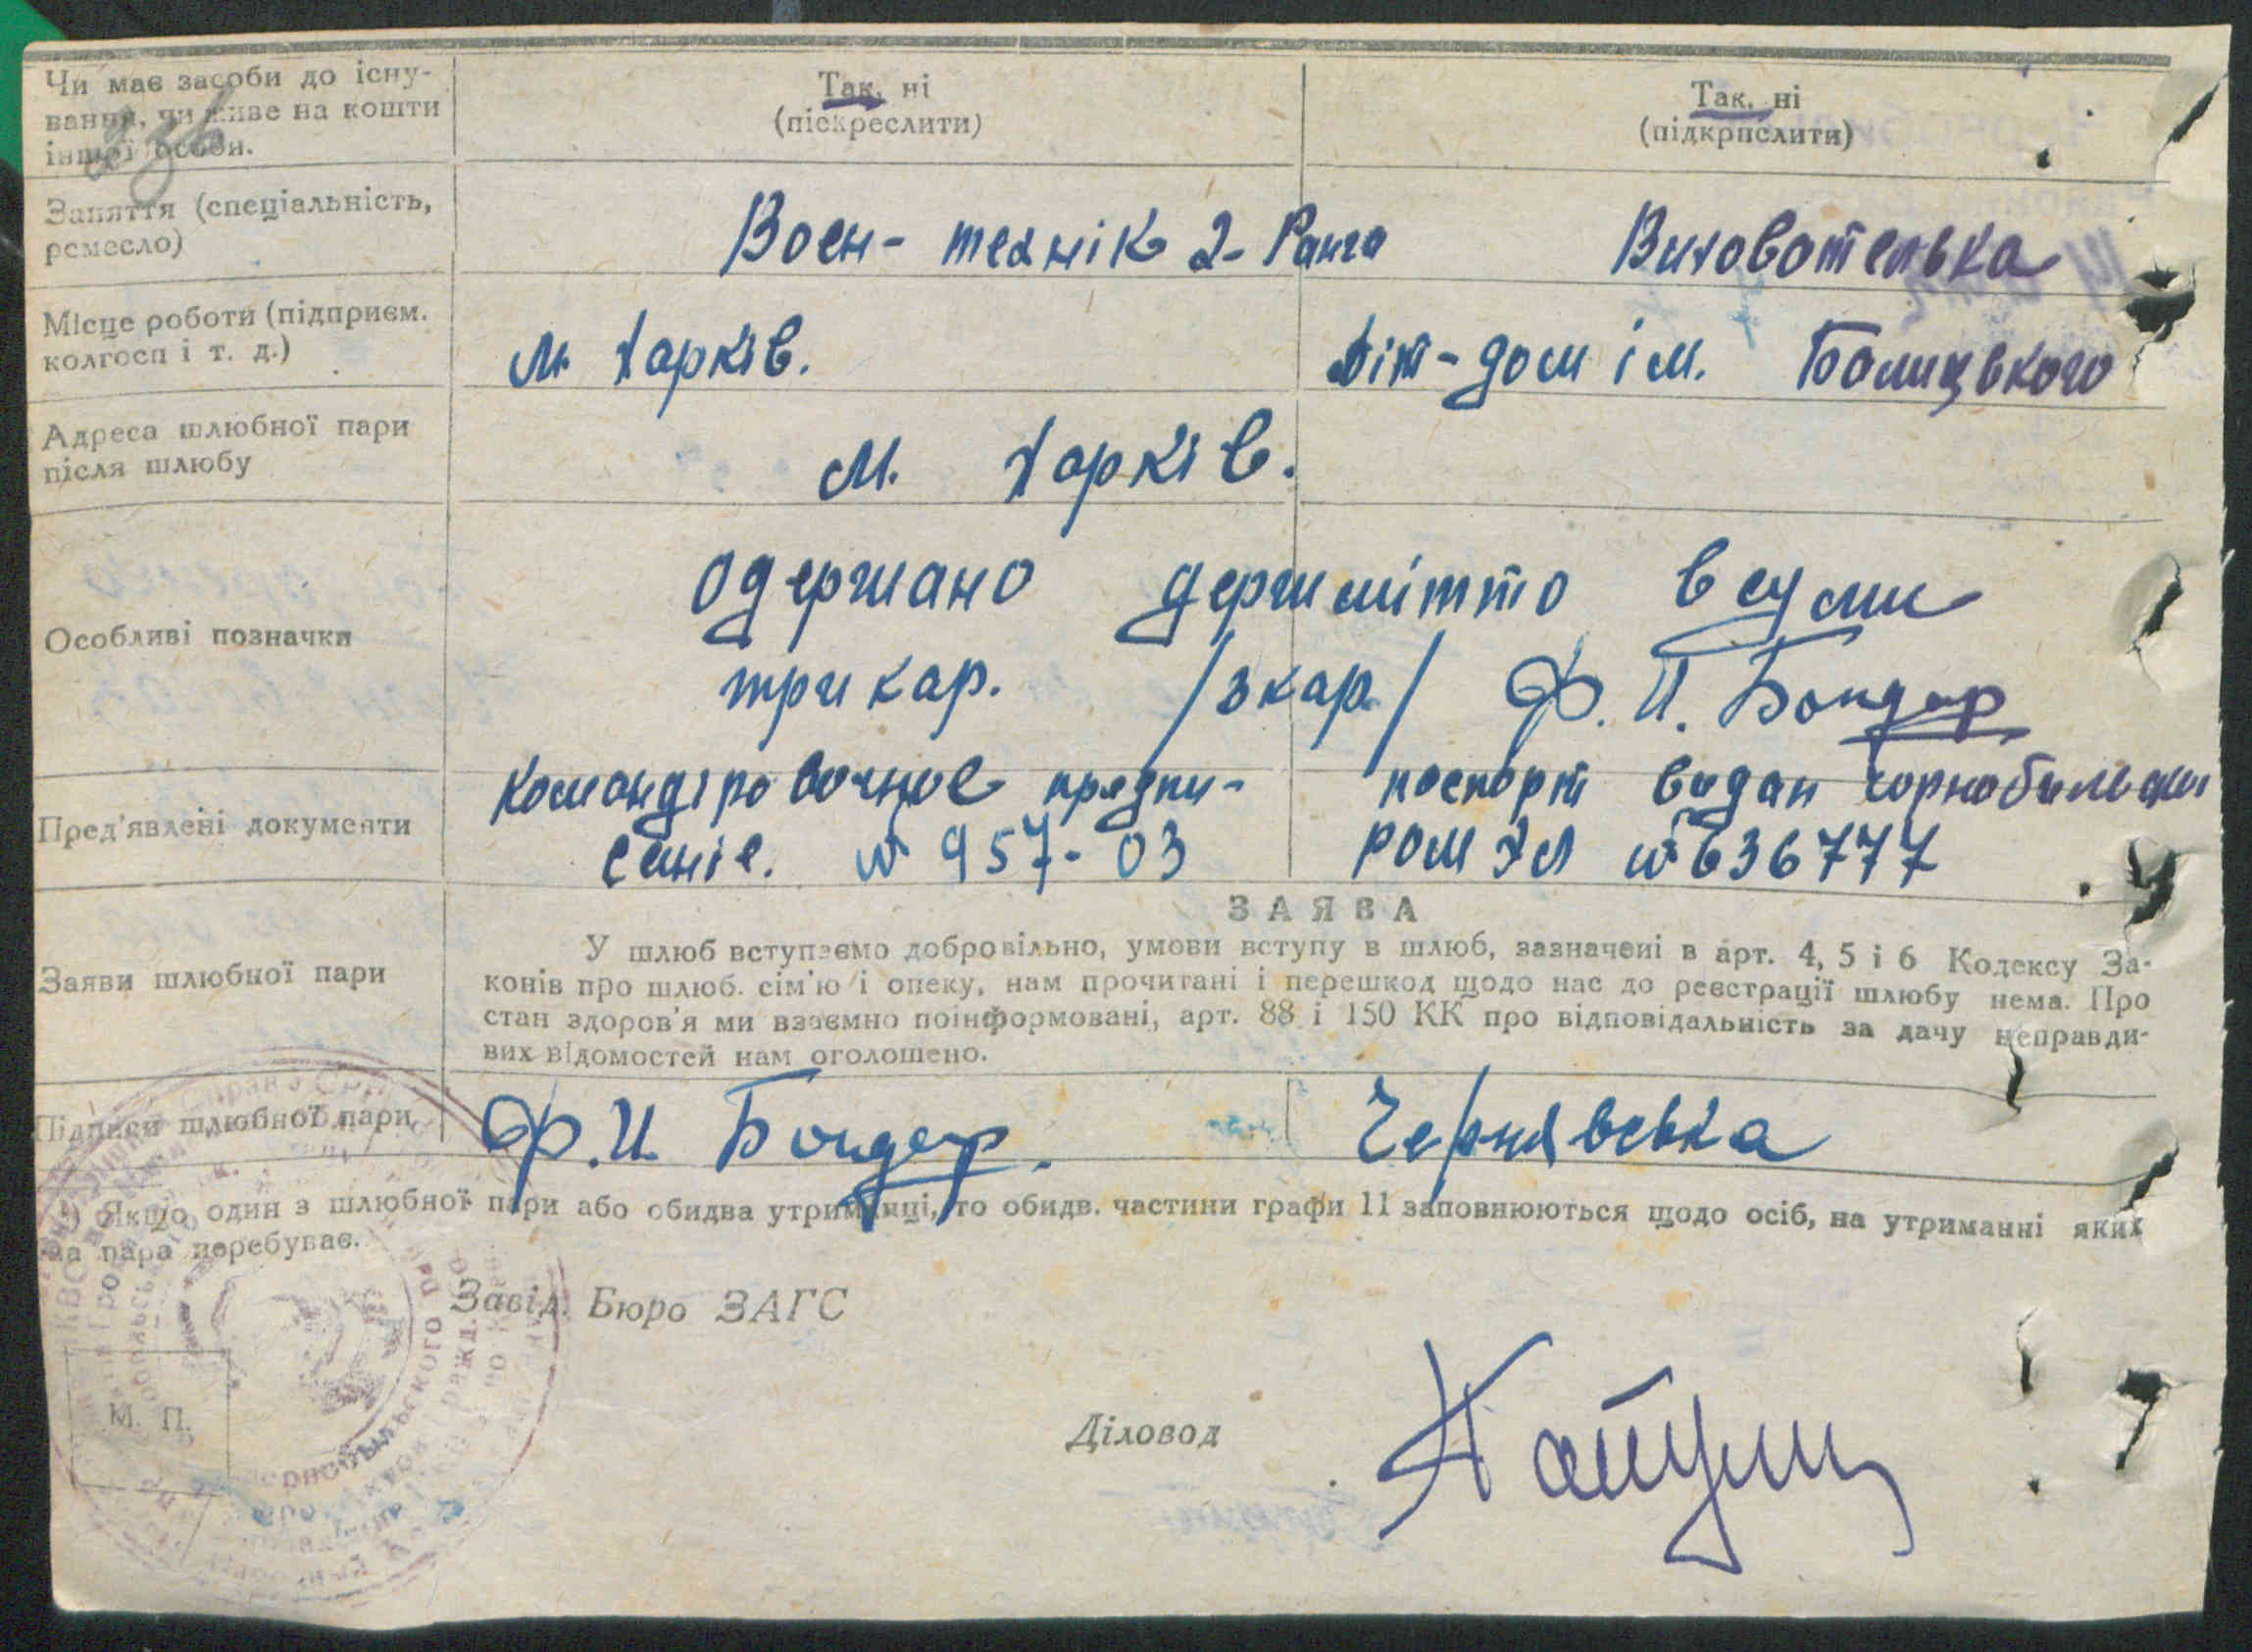 Чи має засоби до існу-
вання, чи живе на кошти
іншої особи.
Так, ні
(піскреслити)
Так, ні
(підкрпслити)
Заняття (спеціальність,
ремесло)
Воен-технік 2-Ранга
Виховотелька
Місце роботи (підприєм.
колгосп і т. д.)
м. Харків.
Діт-дом ім. Балицького
Адреса шлюбної пари
після шлюбу
м. Харків.
Особливі позначки
Одержано держмітто в суми
три кар. /3 кар./ Ф. И. Бондар
Пред'явлені документи
Командіровочное предпи-
сание. № 957-03
паспорт видан Чорнобильским
РОМ ХЛ № 636777
Заяви шлюбної пари
ЗАЯВА
У шлюб вступаємо добровільно, умови вступу в шлюб, зазначені в арт. 4, 5 і 6 Кодексу За-
конів про шлюб. сім'ю і опеку, нам прочитані і перешкод щодо нас до реєстрації шлюбу нема. Про
стан здоров'я ми взаємно поінформовані, арт. 88 і 150 КК про відповідальність за дачу неправди-
вих відомостей нам оголошено.
Підписи шлюбної пари
Ф. И. Бондар.
Чернявська
Якщо один з шлюбної пари або обидва утриманці, то обидв. частини графи 11 заповнюються щодо осіб, на утриманні яких
ця пара перебуває.
Завід. Бюро ЗАГС
М. П.
Діловод